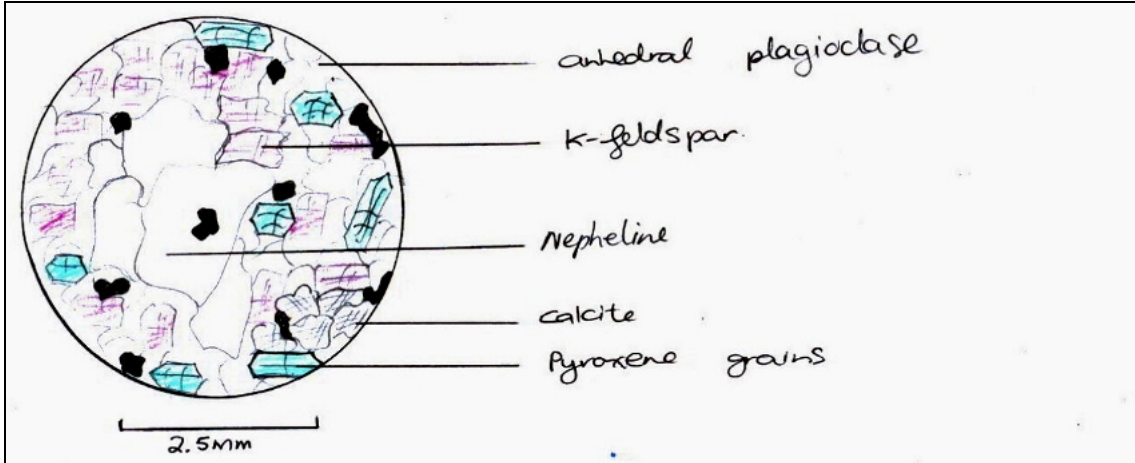 anhedral plagioclase
K-feldspar.
Nepheline
calcite
Pyroxene grains
2.5mm